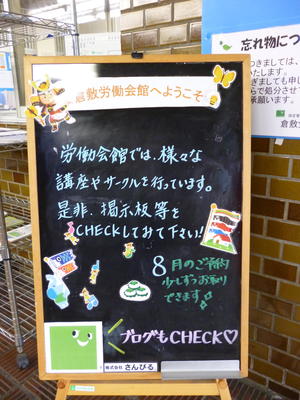 倉敷労働会館へようこそ
労働会館では、様々な
講座やサークルを行っています。
是非、掲示板等を
CHECKしてみて下さい!
8月のご予約
少しずつお取り
できます。
ブログもCHECK♡
株式会社 さんびる
忘れ物につ
つきましては、
いたします。
ぎましても申し
らで処分させて
承願います。
倉敷労